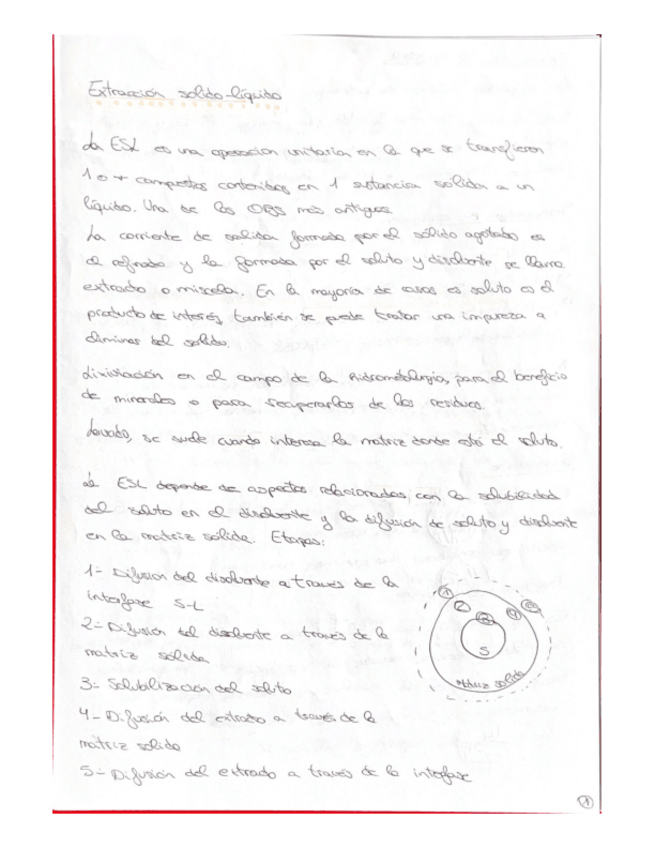 Extracción solido-líquido
La ESL es una operación unitaria en la que se transfieren
1 o + compuestos contenidos en 1 sustancia sólida a un
líquido. Una de las OBS más antiguas
La corriente de salida formada por el sólido agotado es
el refinado y la formada por el soluto y disolvente se llama
extracto o miscela. En la mayoría de casos es soluto es el
producto de interés, también se puede tratar una impureza a
eliminar del solido.
Lixiviación en el campo de la hidrometalurgia, para el beneficio
de minerales o para recuperarlos de los residuos.
Lavado, se suele cuando interesa la matriz donde está el soluto.
La ESL depende de aspectos relacionados con la solubilidad
del soluto en el disolvente y la difusión de soluto y disolvente
en la matriz solida. Etapas:
1- Difusion del disolvente a traves de la
interfase S-L
2- Difusión del disolvente a través de la
matriz solida
3- Solubilización del soluto
4- Difusión del extrado a través de la
matriz solido
5- Difusión del extrado a través de la interfase
1
2
3
4
5
S
Matriz solida
1